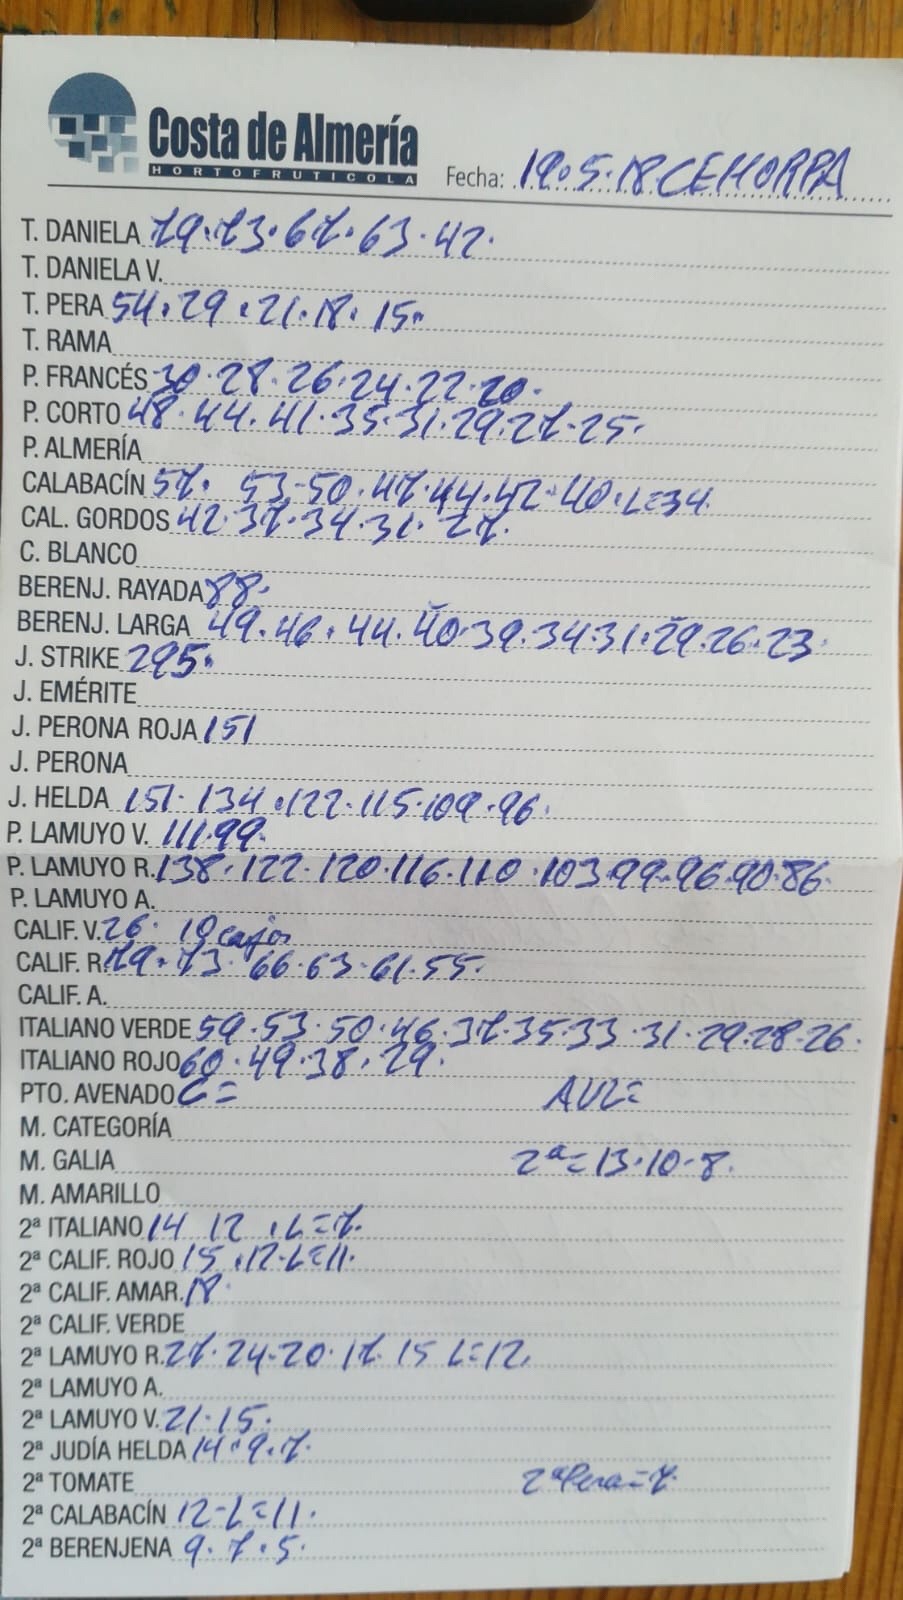 Costa de Almería
HORTOFRUTICOLA
Fecha: 19.5.18 CEHORPA
T. DANIELA 79.73.67.63.42.
T. DANIELA V.
T. PERA 54.29.21.18.15.
T. RAMA
P. FRANCÉS 30.28.26.24.22.20.
P. CORTO 48.44.41.35.31.29.27.25.
P. ALMERÍA
CALABACÍN 57. 53-50.47.44.42-40.L=34.
CAL. GORDOS 42.37.34.31.27.
C. BLANCO
BERENJ. RAYADA 88.
BERENJ. LARGA 49.46.44.40.39.34.31.29.26.23.
J. STRIKE 295.
J. EMÉRITE
J. PERONA ROJA 151
J. PERONA
J. HELDA 151.134.122.115.109.96.
P. LAMUYO V. 111.99.
P. LAMUYO R. 138.122.120.116.110.103.99.96.90.86.
P. LAMUYO A.
CALIF. V. 26. 10 cajas
CALIF. R. 79.73.66.63.61.55.
CALIF. A.
ITALIANO VERDE 59.53.50.46.37.35.33.31.29.28.26.
ITALIANO ROJO 60.49.38.29.
PTO. AVENADO C= AVZ=
M. CATEGORÍA
M. GALIA 2ª=13.10.8.
M. AMARILLO
2ª ITALIANO 14 12 .L=7.
2ª CALIF. ROJO 15.12-L=11.
2ª CALIF. AMAR. 18.
2ª CALIF. VERDE
2ª LAMUYO R. 27.24-20.17.15 L=12.
2ª LAMUYO A.
2ª LAMUYO V. 21.15.
2ª JUDÍA HELDA 14.9.7.
2ª TOMATE 2ª Pera=7.
2ª CALABACÍN 12-L=11.
2ª BERENJENA 9.7.5.